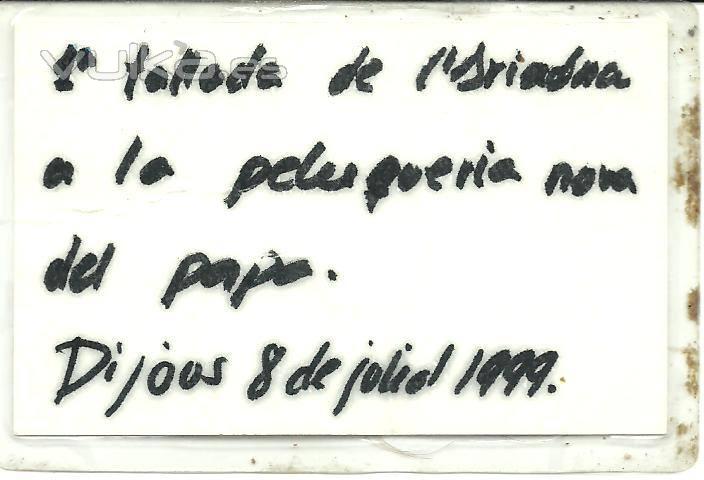 vulka.es
1ª tallada de l'Ariadna
a la pelusqueria nova
del papa.
Dijous 8 de juliol 1999.